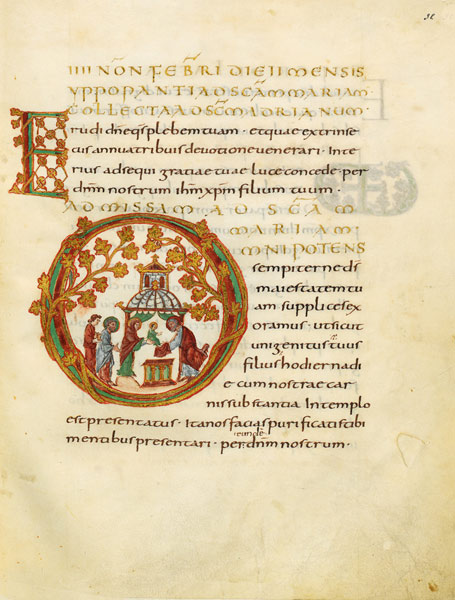 IIII NON FEBRI DIE II MENSIS
YPPOPANTI AD SCAM MARIAM
COLLECTA AD SCM ADRIANUM
Erudi dne qs plebem tuam · et quae extrinse
cis annua tribuis devotione venerari · Inte
rius adsequi gratiae tuae luce concede · per
dnm nostrum ihm xpm filium tuum ·
AD MISSAM AD SCAM
MARIAM
OMNIPOTENS
sempiterne ds
maiestatem tu
am supplices ex
oramus · ut sicut
unigenitus tuus
filius hodierna di
e cum nostrae car
nis substantia In templo
est presentatus · Ita nos facias purificatis tibi
mentibus presentari · per eunde dnm nostrum ·